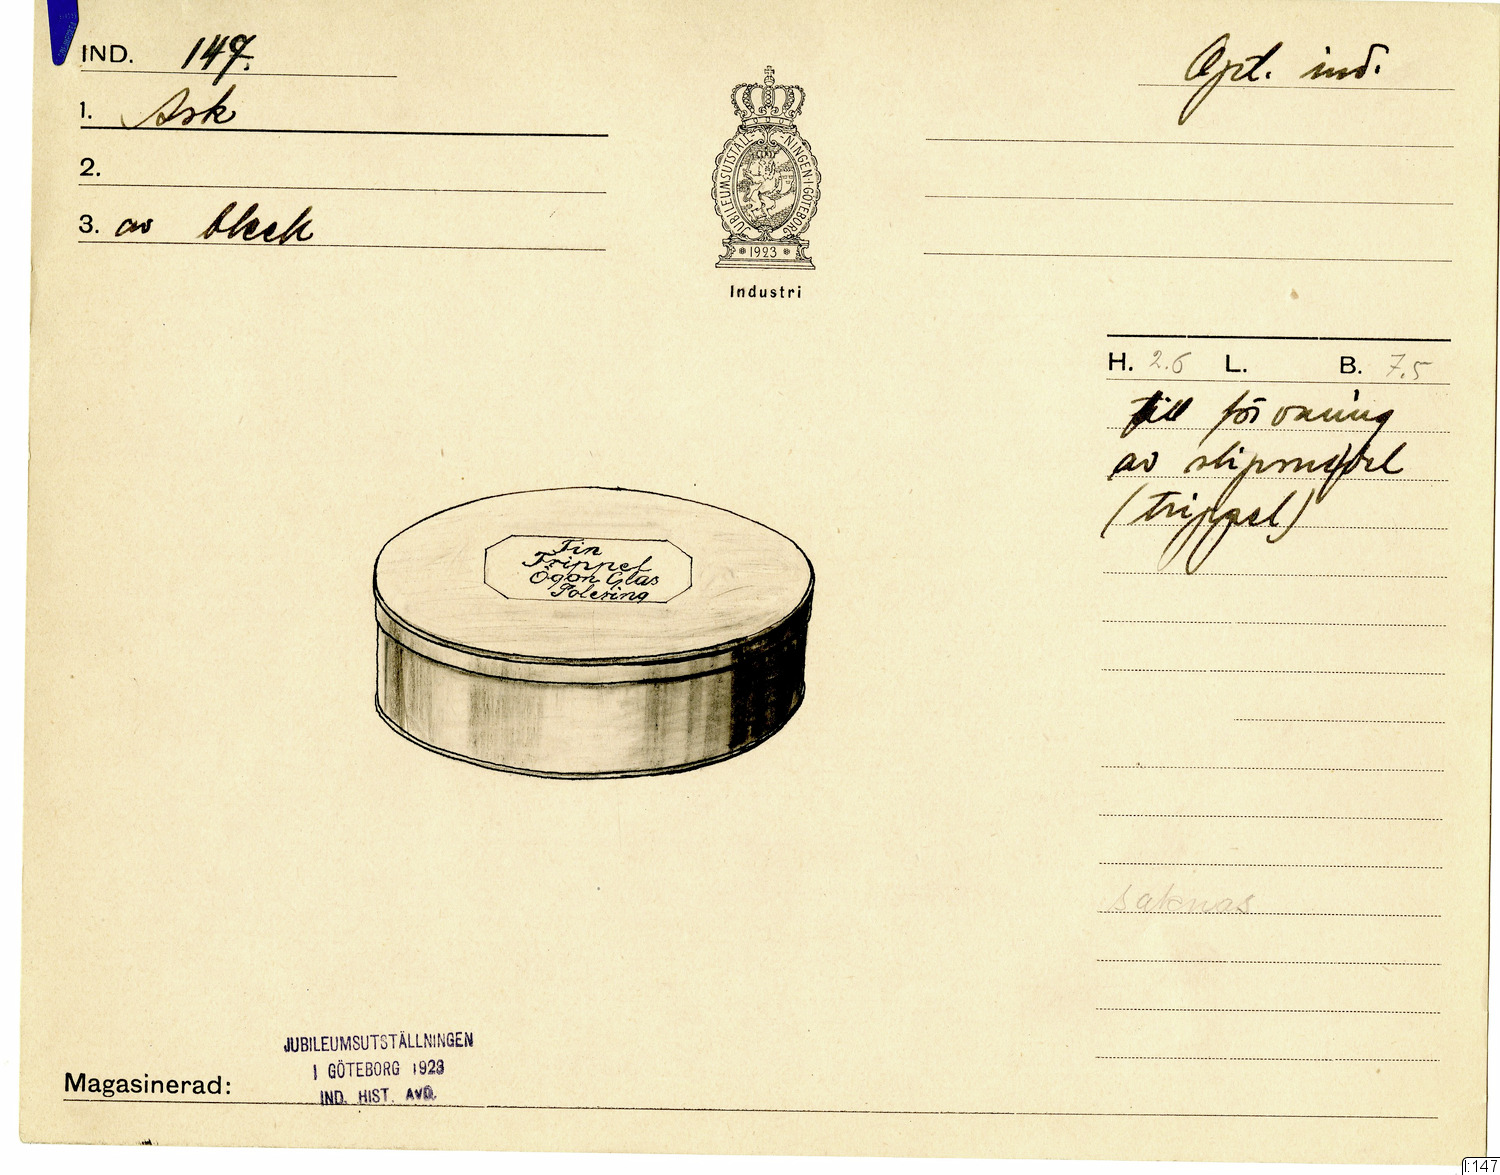 IND. 147.
Opt. ind.
1. Ask
2.
3. av bleck
JUBILEUMSUTSTÄLLNINGEN I GÖTEBORG
1923
Industri
H. 2.6 L. B. 7.5
till förvaring
av slipmedel
(trippel)
Fin
Trippel
Ögon Glas
Polering
saknas
JUBILEUMSUTSTÄLLNINGEN
I GÖTEBORG 1923
IND. HIST. AVD.
Magasinerad:
I:147